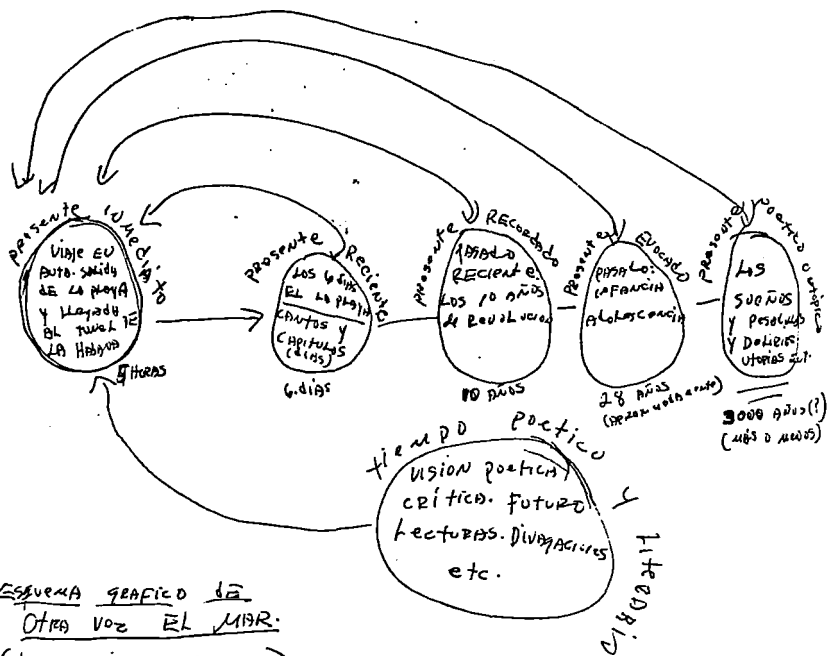 presente inmediato
Viaje en
auto. salida
de la playa
y llegada
al tunel de
la Habana
5 horas
presente reciente
los 6 dias
en la playa
cantos y
capitulos
(dias)
6. dias
presente recordado
pasado
reciente:
los 10 años
de Revolucion
10 años
presente evocado
pasado:
infancia
adolescencia
28 años
(aproximadamente)
presente poetico outópico
Los
sueños
y pesadillas
y delirios
utopias
3000 años(?)
(más o menos)
tiempo poetico y literario
vision poetica,
crítica. futuro
Lecturas. Divagaciones
etc.
Esquema grafico de
Otra vez el mar.